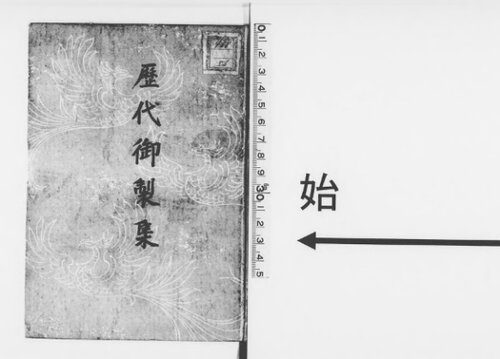 歷代御製集
0 1 2 3 4 5 6 7 8 9 30 1 2 3 4 5
始